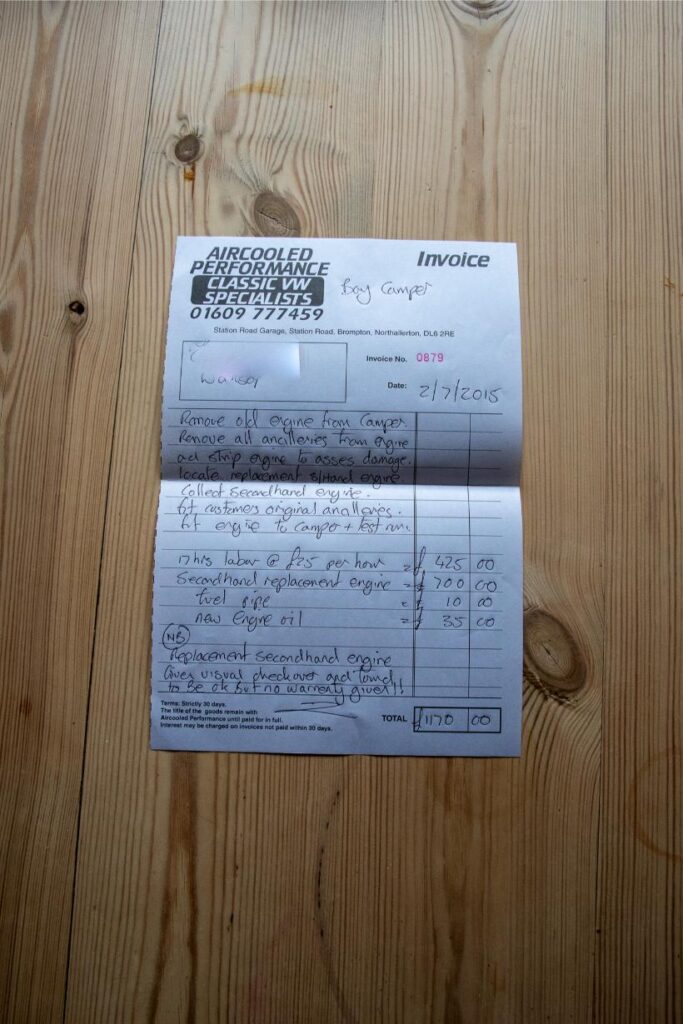 AIRCOOLED
PERFORMANCE
CLASSIC VW
SPECIALISTS
01609 777459
Invoice
Bay Camper
Station Road Garage, Station Road, Brompton, Northallerton, DL6 2RE
Invoice No. 0879
Date: 2/7/2015
Remove old engine from Camper.
Remove all ancilleries from engine
and strip engine to asses damage.
Locate replacement S/Hand engine
Collect Secondhand engine.
fit customers original ancilleries.
fit engine to camper + test run.
17 hrs labar @ £25 per hour = £ 425 00
Secondhand replacement engine = £ 700 00
fuel pipe = £ 10 00
new Engine oil = £ 35 00
NB
Replacement secondhand engine
Given visual checkover and found
to be ok but no warrenty given!!
Terms: Strictly 30 days.
The title of the goods remain with
Aircooled Performance until paid for in full.
Interest may be charged on invoices not paid within 30 days.
TOTAL £1170 00